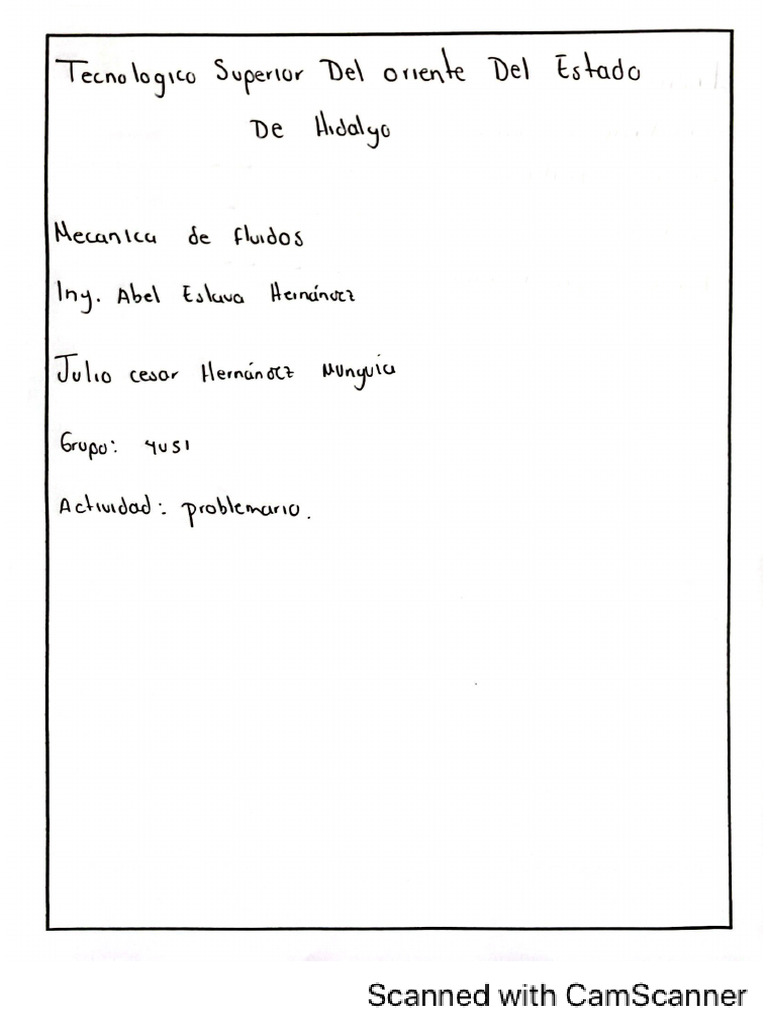 Tecnologico Superior Del oriente Del Estado
De Hidalgo
Mecanica de fluidos
Ing. Abel Eslava Hernández
Julio cesar Hernández Munguía
Grupo: 4US1
Actividad: problemario.
Scanned with CamScanner